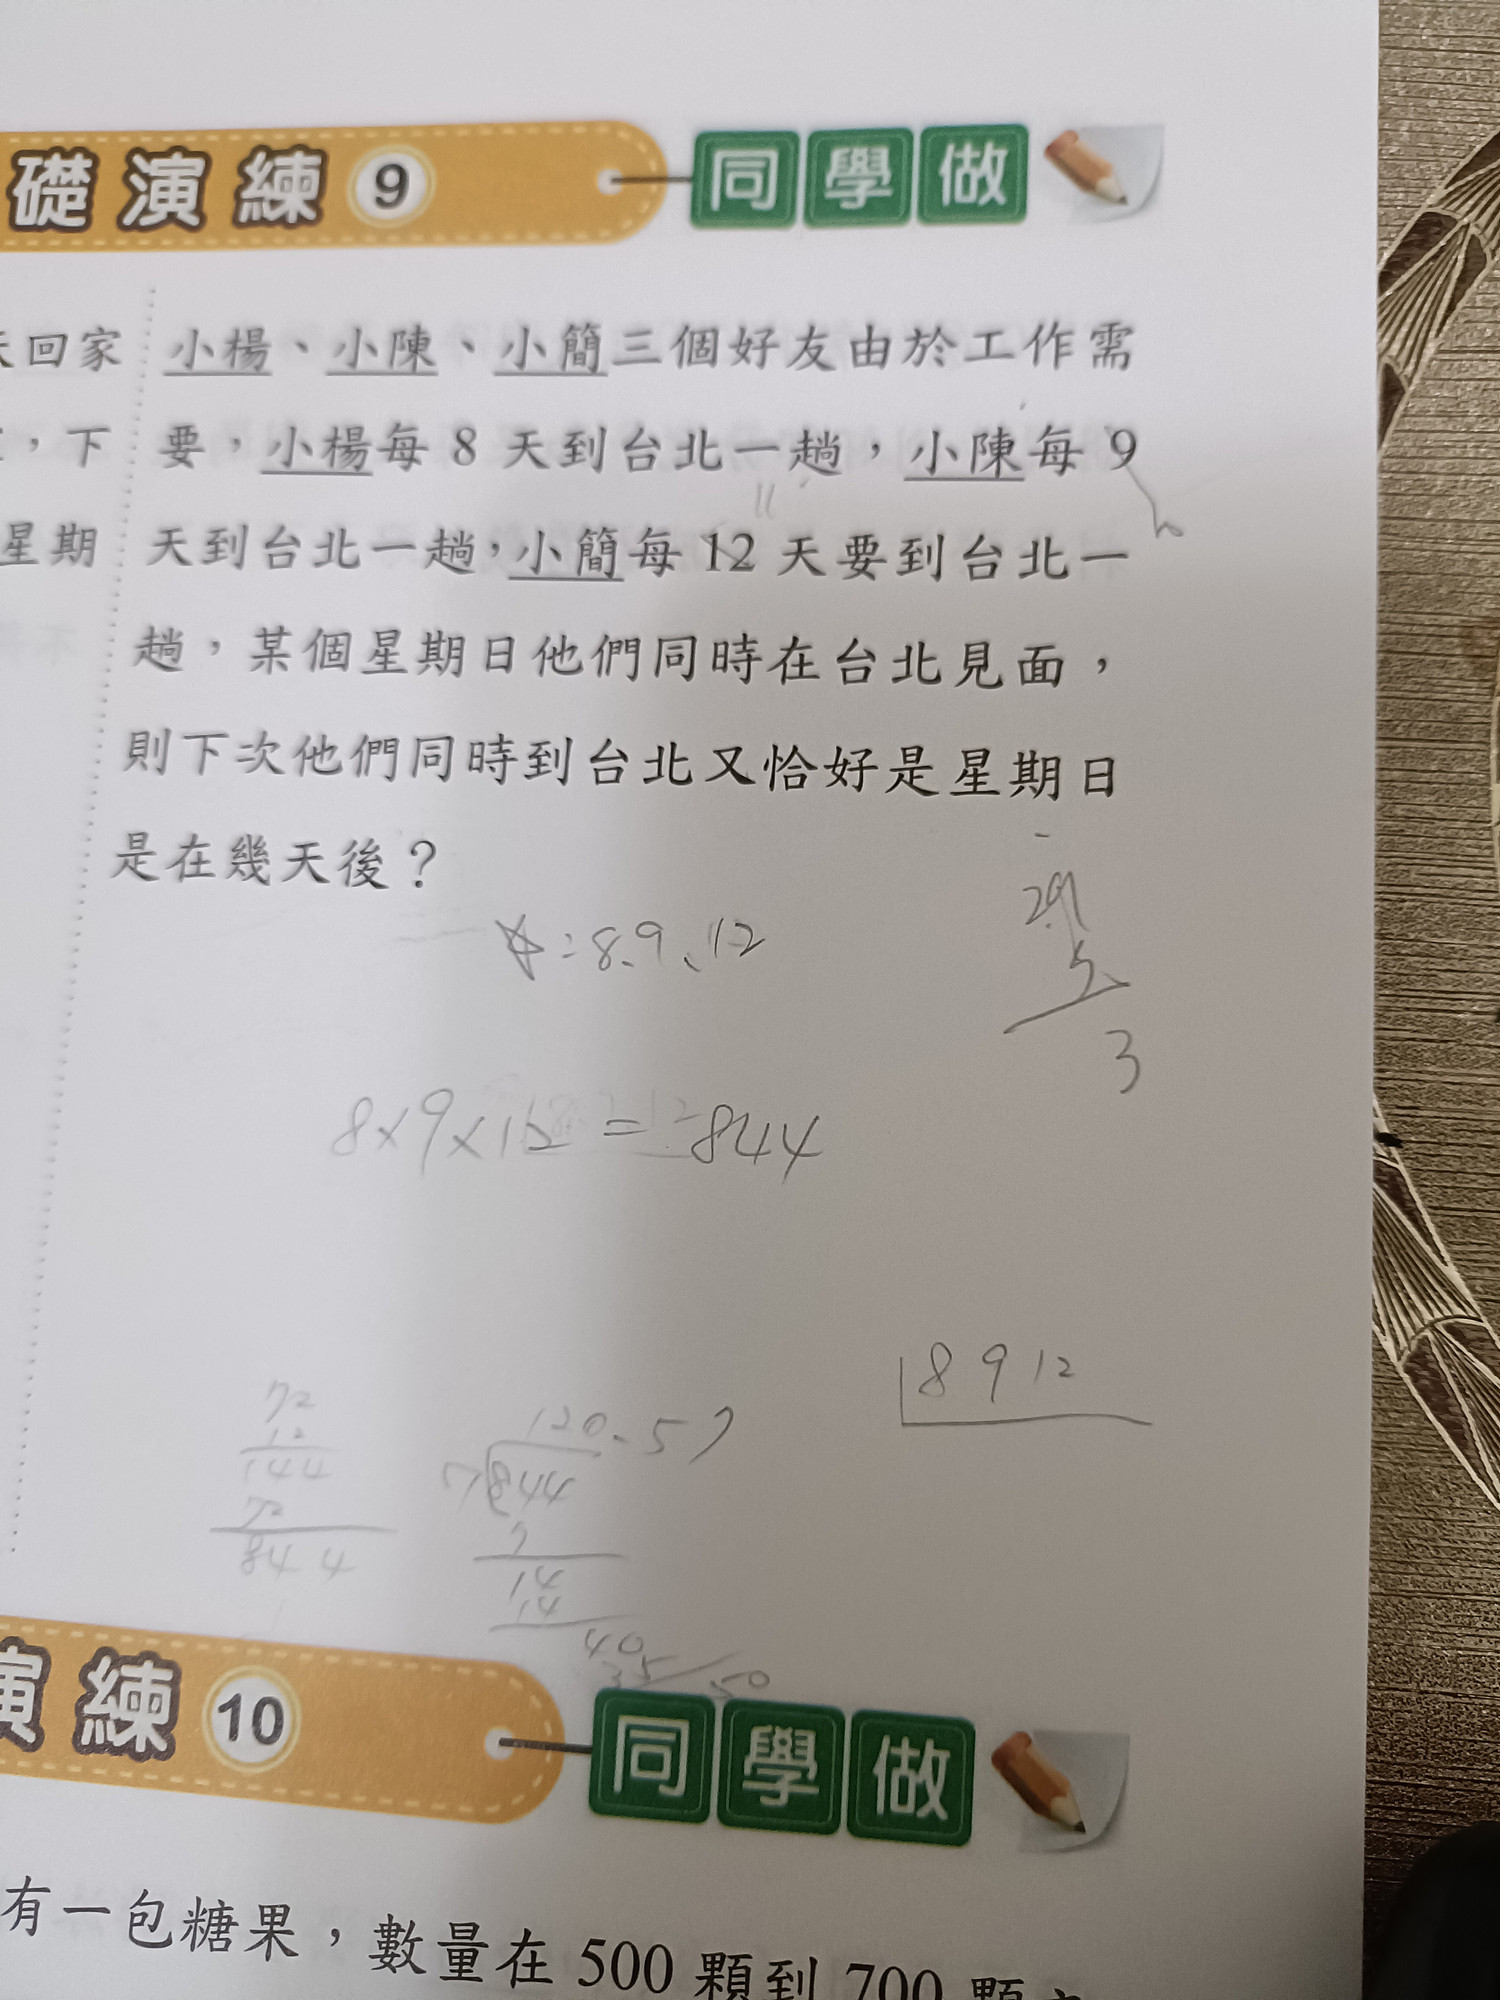 礎演練 9 同學做
天回家
，下
星期
小楊、小陳、小簡三個好友由於工作需
要，小楊每 8 天到台北一趟，小陳每 9
天到台北一趟，小簡每 12 天要到台北一
趟，某個星期日他們同時在台北見面，
則下次他們同時到台北又恰好是星期日
是在幾天後？
:8、9、12
5
3
8×9×12=844
8 9 12
72
12
144
72
844
120.57
7 844
7
14
14
40
35
50
演練 10 同學做
有一包糖果，數量在 500 顆到 700 顆